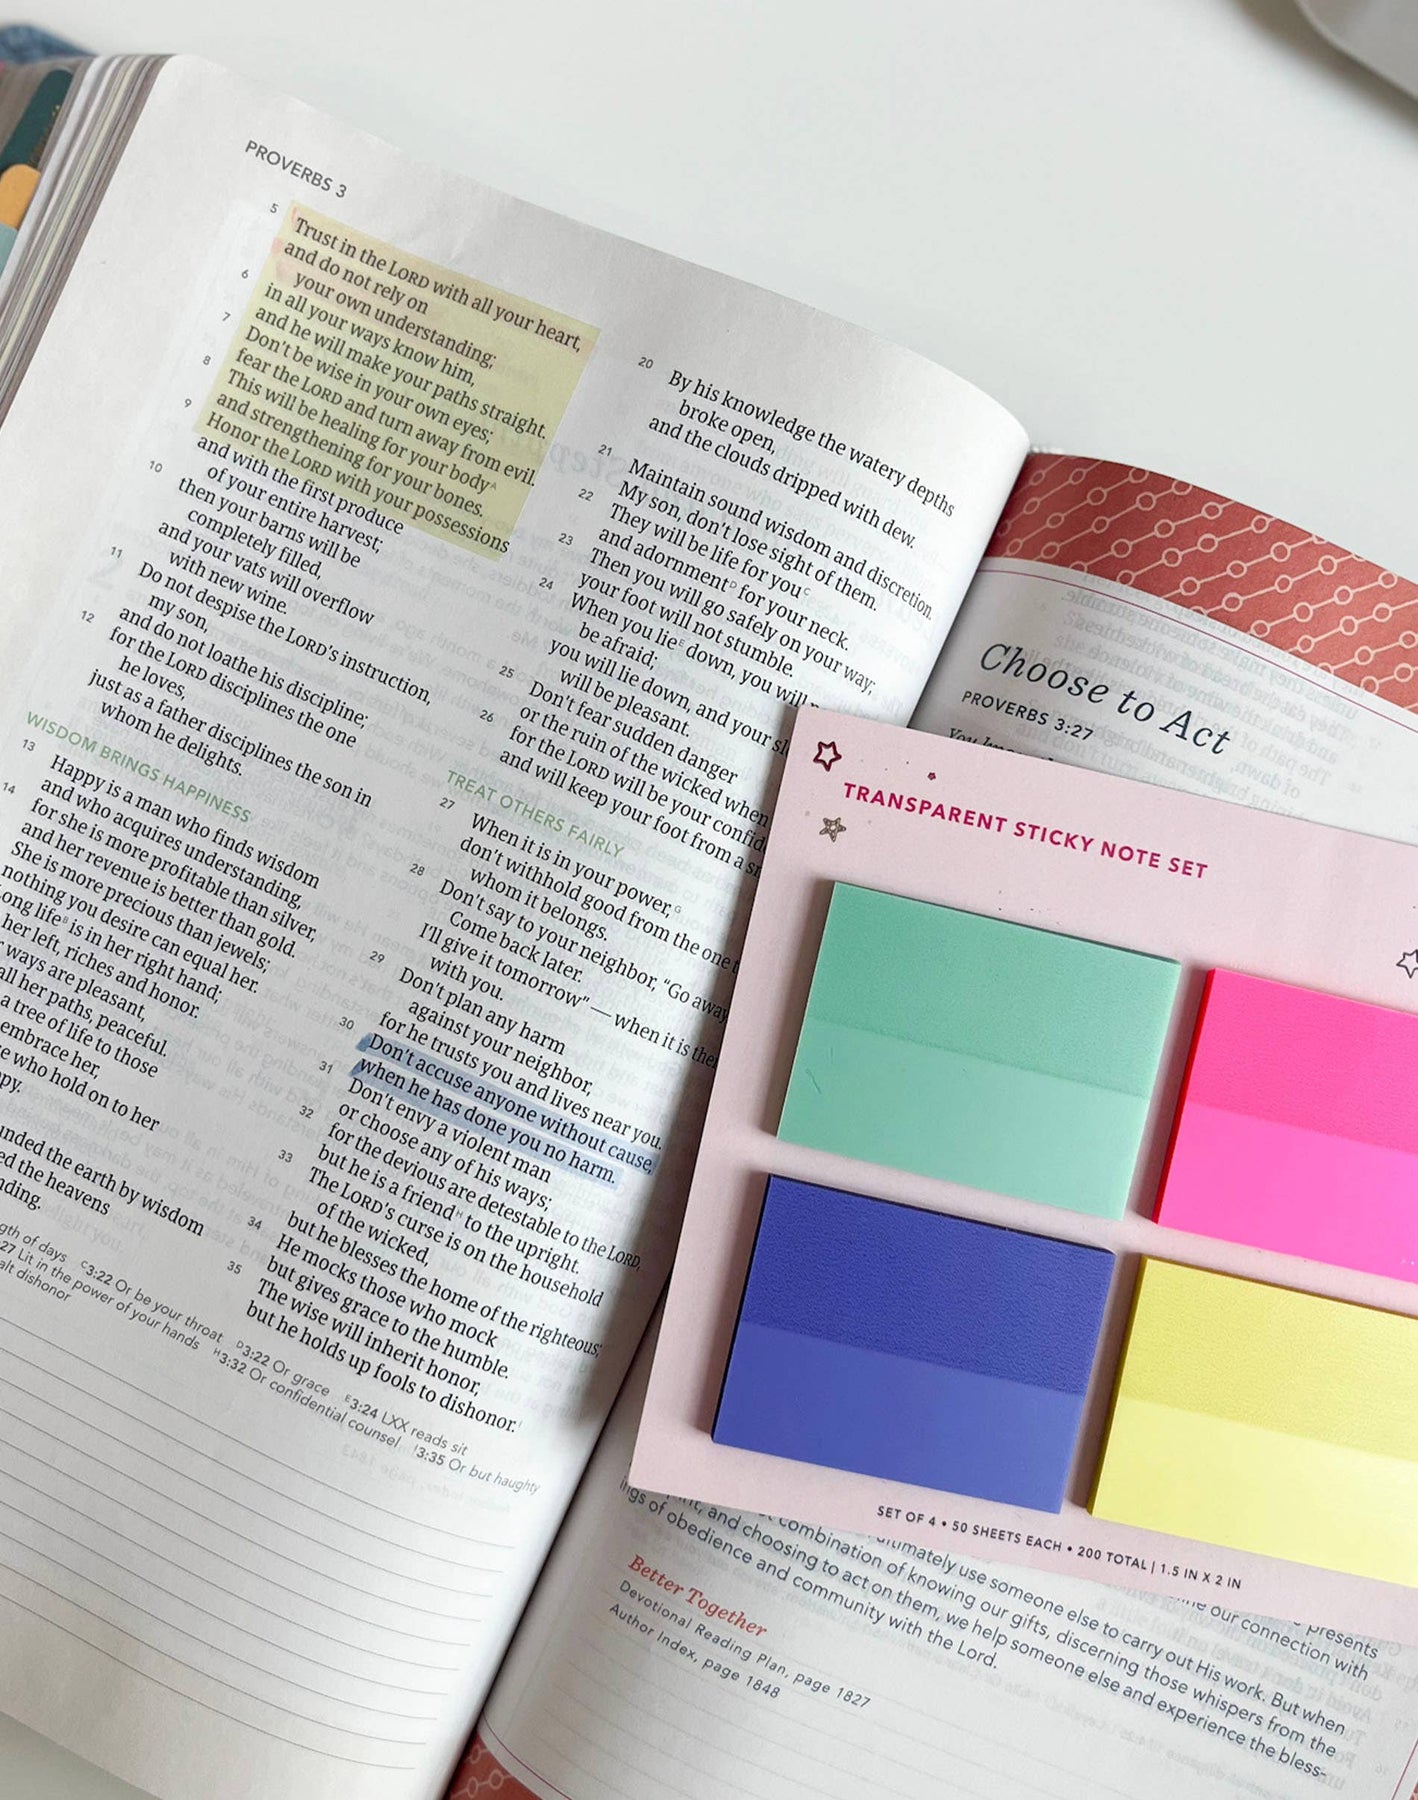 PROVERBS 3
5 Trust in the LORD with all your heart,
and do not rely on
your own understanding;
6 in all your ways know him,
and he will make your paths straight.
7 Don't be wise in your own eyes;
fear the LORD and turn away from evil.
8 This will be healing for your bodyᴬ
and strengthening for your bones.
9 Honor the LORD with your possessions
and with the first produce
of your entire harvest;
10 then your barns will be
completely filled,
and your vats will overflow
with new wine.
11 Do not despise the LORD's instruction,
my son,
and do not loathe his discipline;
12 for the LORD disciplines the one
he loves,
just as a father disciplines the son in
whom he delights.
WISDOM BRINGS HAPPINESS
13 Happy is a man who finds wisdom
and who acquires understanding,
14 for she is more profitable than silver,
and her revenue is better than gold.
She is more precious than jewels;
nothing you desire can equal her.
Long lifeᴮ is in her right hand;
her left, riches and honor.
ways are pleasant,
all her paths, peaceful.
a tree of life to those
embrace her,
who hold on to her
the earth by wisdom
the heavens
20 By his knowledge the watery depths
broke open,
and the clouds dripped with dew.
21 Maintain sound wisdom and discretion.
My son, don't lose sight of them.
22 They will be life for youᶜ
and adornmentᴰ for your neck.
23 Then you will go safely on your way;
your foot will not stumble.
24 When you lieᴱ down, you will
be afraid;
you will lie down, and your
will be pleasant.
25 Don't fear sudden danger
or the ruin of the wicked when
26 for the LORD will be your
and will keep your foot from a
TREAT OTHERS FAIRLY
27 When it is in your power,ᴳ
don't withhold good from the one
whom it belongs.
28 Don't say to your neighbor, “Go away
Come back later.
I'll give it tomorrow”—when it is
with you.
29 Don't plan any harm
against your neighbor,
for he trusts you and lives near you.
30 Don't accuse anyone without cause,
when he has done you no harm.
31 Don't envy a violent man
or choose any of his ways;
32 for the devious are detestable to the LORD,
but he is a friendᴴ to the upright.
33 The LORD's curse is on the household
of the wicked,
but he blesses the home of the righteous;
34 He mocks those who mock
but gives grace to the humble.
35 The wise will inherit honor,
but he holds up fools to dishonor.ᴵ
of days ᶜ3:22 Or be your throat ᴰ3:22 Or grace ᴱ3:24 LXX reads sit
27 Lit in the power of your hands ᴴ3:32 Or confidential counsel ᴵ3:35 Or but haughty
dishonor
Choose to Act
PROVERBS 3:27
TRANSPARENT STICKY NOTE SET
SET OF 4 • 50 SHEETS EACH • 200 TOTAL | 1.5 IN X 2 IN
presents
our connection with
ultimately use someone else to carry out His work. But when
combination of knowing our gifts, discerning those whispers from the
and choosing to act on them, we help someone else and experience the bless-
ings of obedience and community with the Lord.
Better Together
Devotional Reading Plan, page 1827
Author Index, page 1848